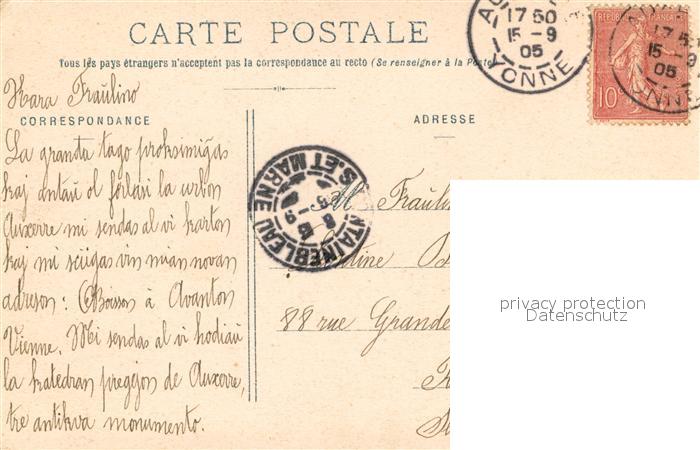 CARTE POSTALE
Tous les pays étrangers n'acceptent pas la correspondance au recto (Se renseigner à la Poste)
CORRESPONDANCE
ADRESSE
Kara Fraŭlino
La granda tago proksimiĝas
kaj antaŭ ol forlasi la urbon
Auxerre mi sendas al vi karton
kaj mi sciigas vin mian novan
adreson: Boisson à Avanton
Vienne. Mi sendas al vi hodiaŭ
la katedran preĝejon de Auxerre,
tre antikva monumento.
M Fraŭlin
88 rue Grande
17 50
15 - 9
05
YONNE
RÉPUBLIQUE FRANÇAISE
10
17 5
15 - 9
05
YONNE
FONTAINEBLEAU
S. ET MARNE
privacy protection
Datenschutz